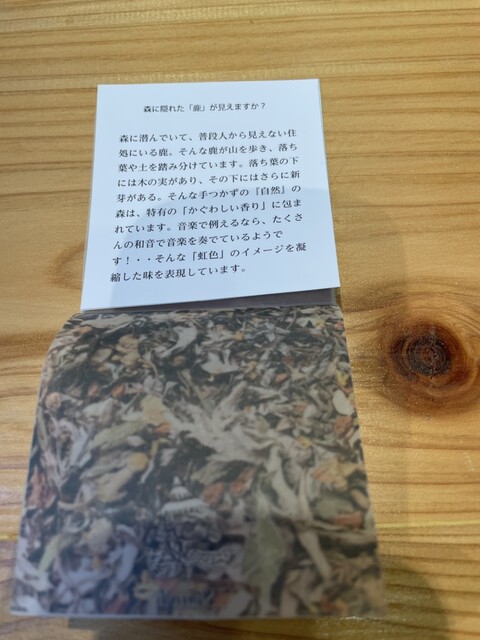 森に隠れた「鹿」が見えますか？
森に潜んでいて、普段人から見えない住
処にいる鹿。そんな鹿が山を歩き、落ち
葉や土を踏み分けています。落ち葉の下
には木の実があり、その下にはさらに新
芽がある。そんな手つかずの『自然』の
森は、特有の「かぐわしい香り」に包ま
れています。音楽で例えるなら、たくさ
んの和音で音楽を奏でているようで
す！・・そんな「虹色」のイメージを凝
縮した味を表現しています。